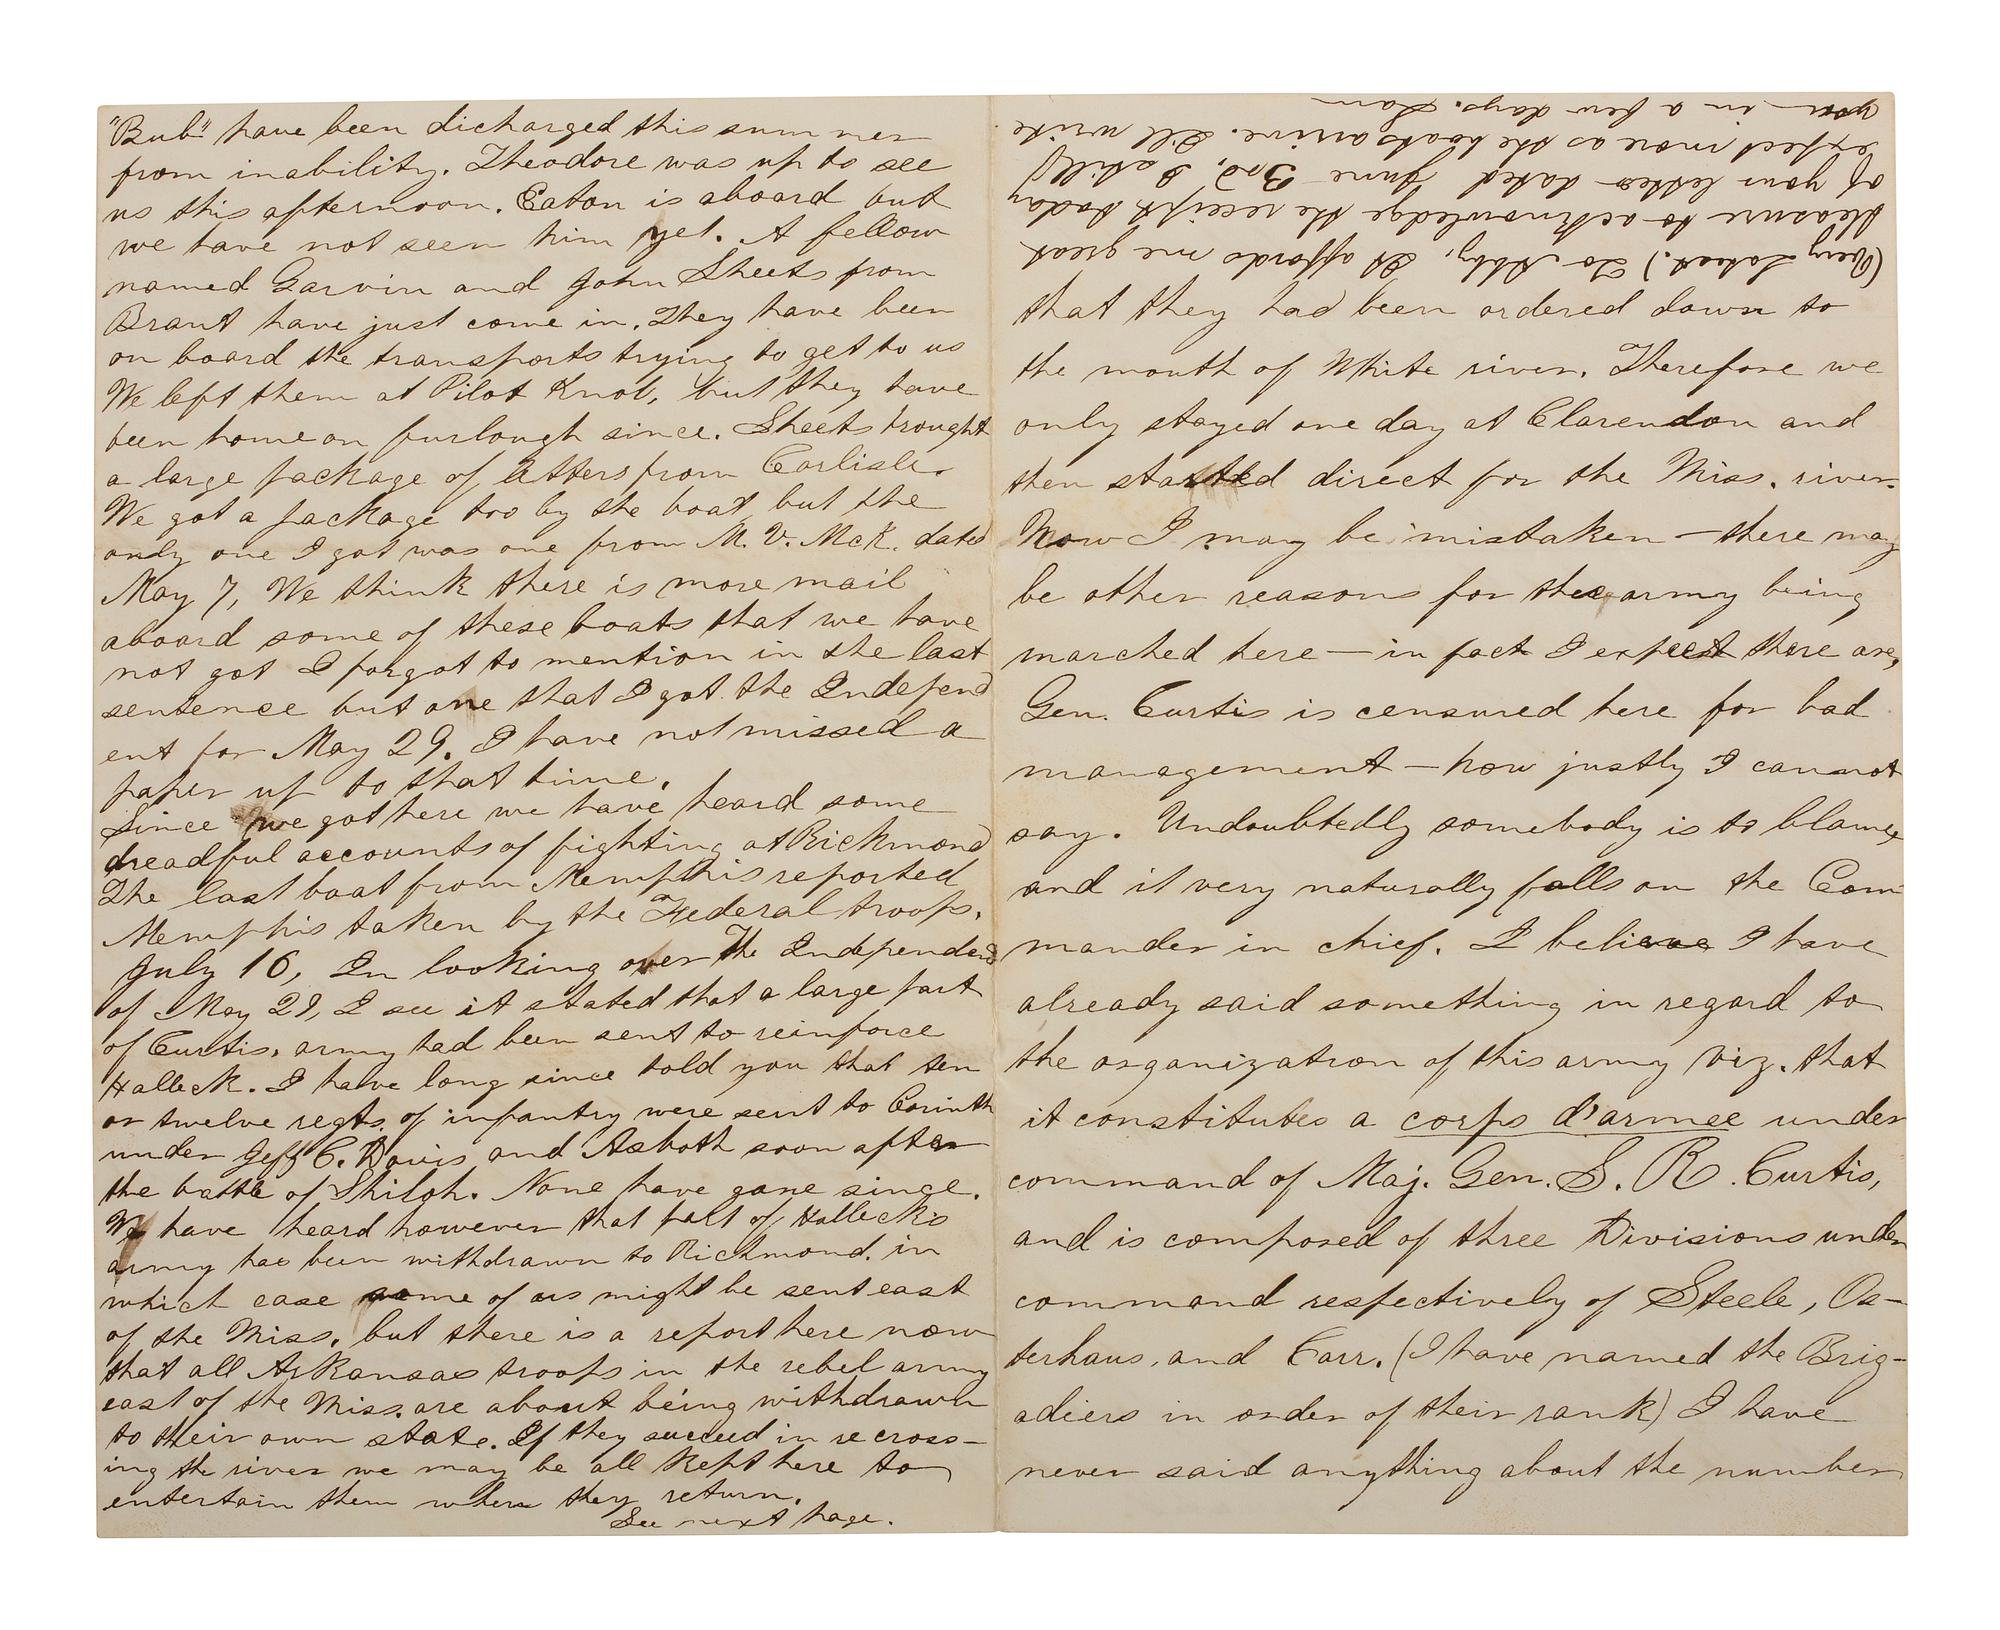 "Bub" have been dicharged this summer
from inability. Theodore was up to see
us this afternoon. Eaton is aboard but
we have not seen him yet. A fellow
named Garvin and John Sheets from
Brant have just come in. They have been
on board the transports trying to get to us
We left them at Pilot Knob, but they have
been home on furlough since. Sheets brought
a large package of letters from Carlisle.
We got a package too by the boat but the
only one I got was one from M. V. McK. dated
May 7, We think there is more mail
aboard some of these boats that we have
not got I forgot to mention in the last
sentence but one that I got the Independ
ent for May 29. I have not missed a
paper up to that time.
Since we got here we have heard some
dreadful accounts of fighting at Richmond
The last boat from Memphis reported
Memphis taken by the Federal troops.
July 16, In looking over the Independent
of May 29, I see it stated that a large part
of Curtis, army had been sent to reinforce
Halleck. I have long since told you that ten
or twelve regts. of infantry were sent to Corinth
under Jeff C. Davis and Asboth soon after
the battle of Shiloh. None have gone since.
We have heard however that part of Halleck's
army has been withdrawn to Richmond. in
which case some of us might be sent east
of the Miss. but there is a report here now
that all Arkansas troops in the rebel army
east of the Miss. are about being withdrawn
to their own state. If they succeed in recross-
ing the river we may be all kept here to
entertain them when they return.
See next page.
(Very Latest.) To Abby, It affords me great
pleasure to acknowledge the receipt today
of your letter dated June 3rd, I still
expect more as the boats arrive. I'll write
you in a few days. Sam
that they had been ordered down to
the mouth of White river. Therefore we
only stayed one day at Clarendon and
then started direct for the Miss. river.
Now I may be mistaken — there may
be other reasons for the army being
marched here — in fact I expect there are,
Gen. Curtis is censured here for bad
management — how justly I cannot
say. Undoubtedly somebody is to blame
and it very naturally falls on the Com
mander in chief. I believe I have
already said something in regard to
the organization of this army viz. that
it constitutes a corps d'armee under
command of Maj. Gen. S. R. Curtis,
and is composed of three Divisions under
command respectively of Steele, Os-
terhaus, and Carr. (I have named the Brig-
adiers in order of their rank) I have
never said anything about the number